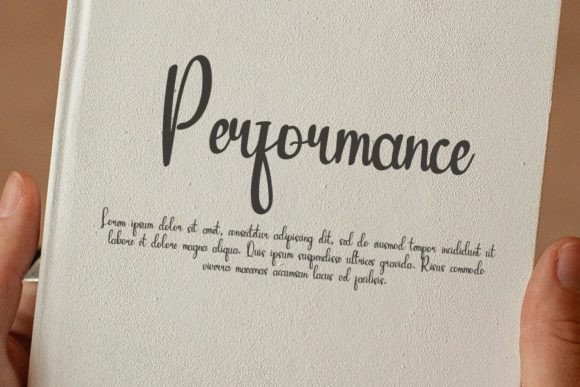 Performance
Lorem ipsum dolor sit amet, consectetur adipiscing elit, sed do eiusmod tempor incididunt ut
labore et dolore magna aliqua. Quis ipsum suspendisse ultrices gravida. Risus commodo
viverra maecenas accumsan lacus vel facilisis.